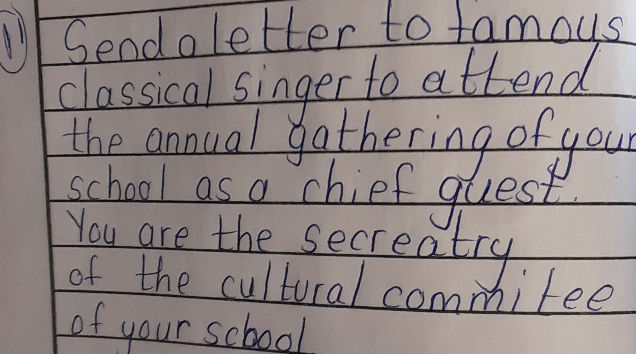 1) Send a letter to famous
classical singer to attend
the annual gathering of your
school as a chief guest.
You are the secreatry
of the cultural commitee
of your school